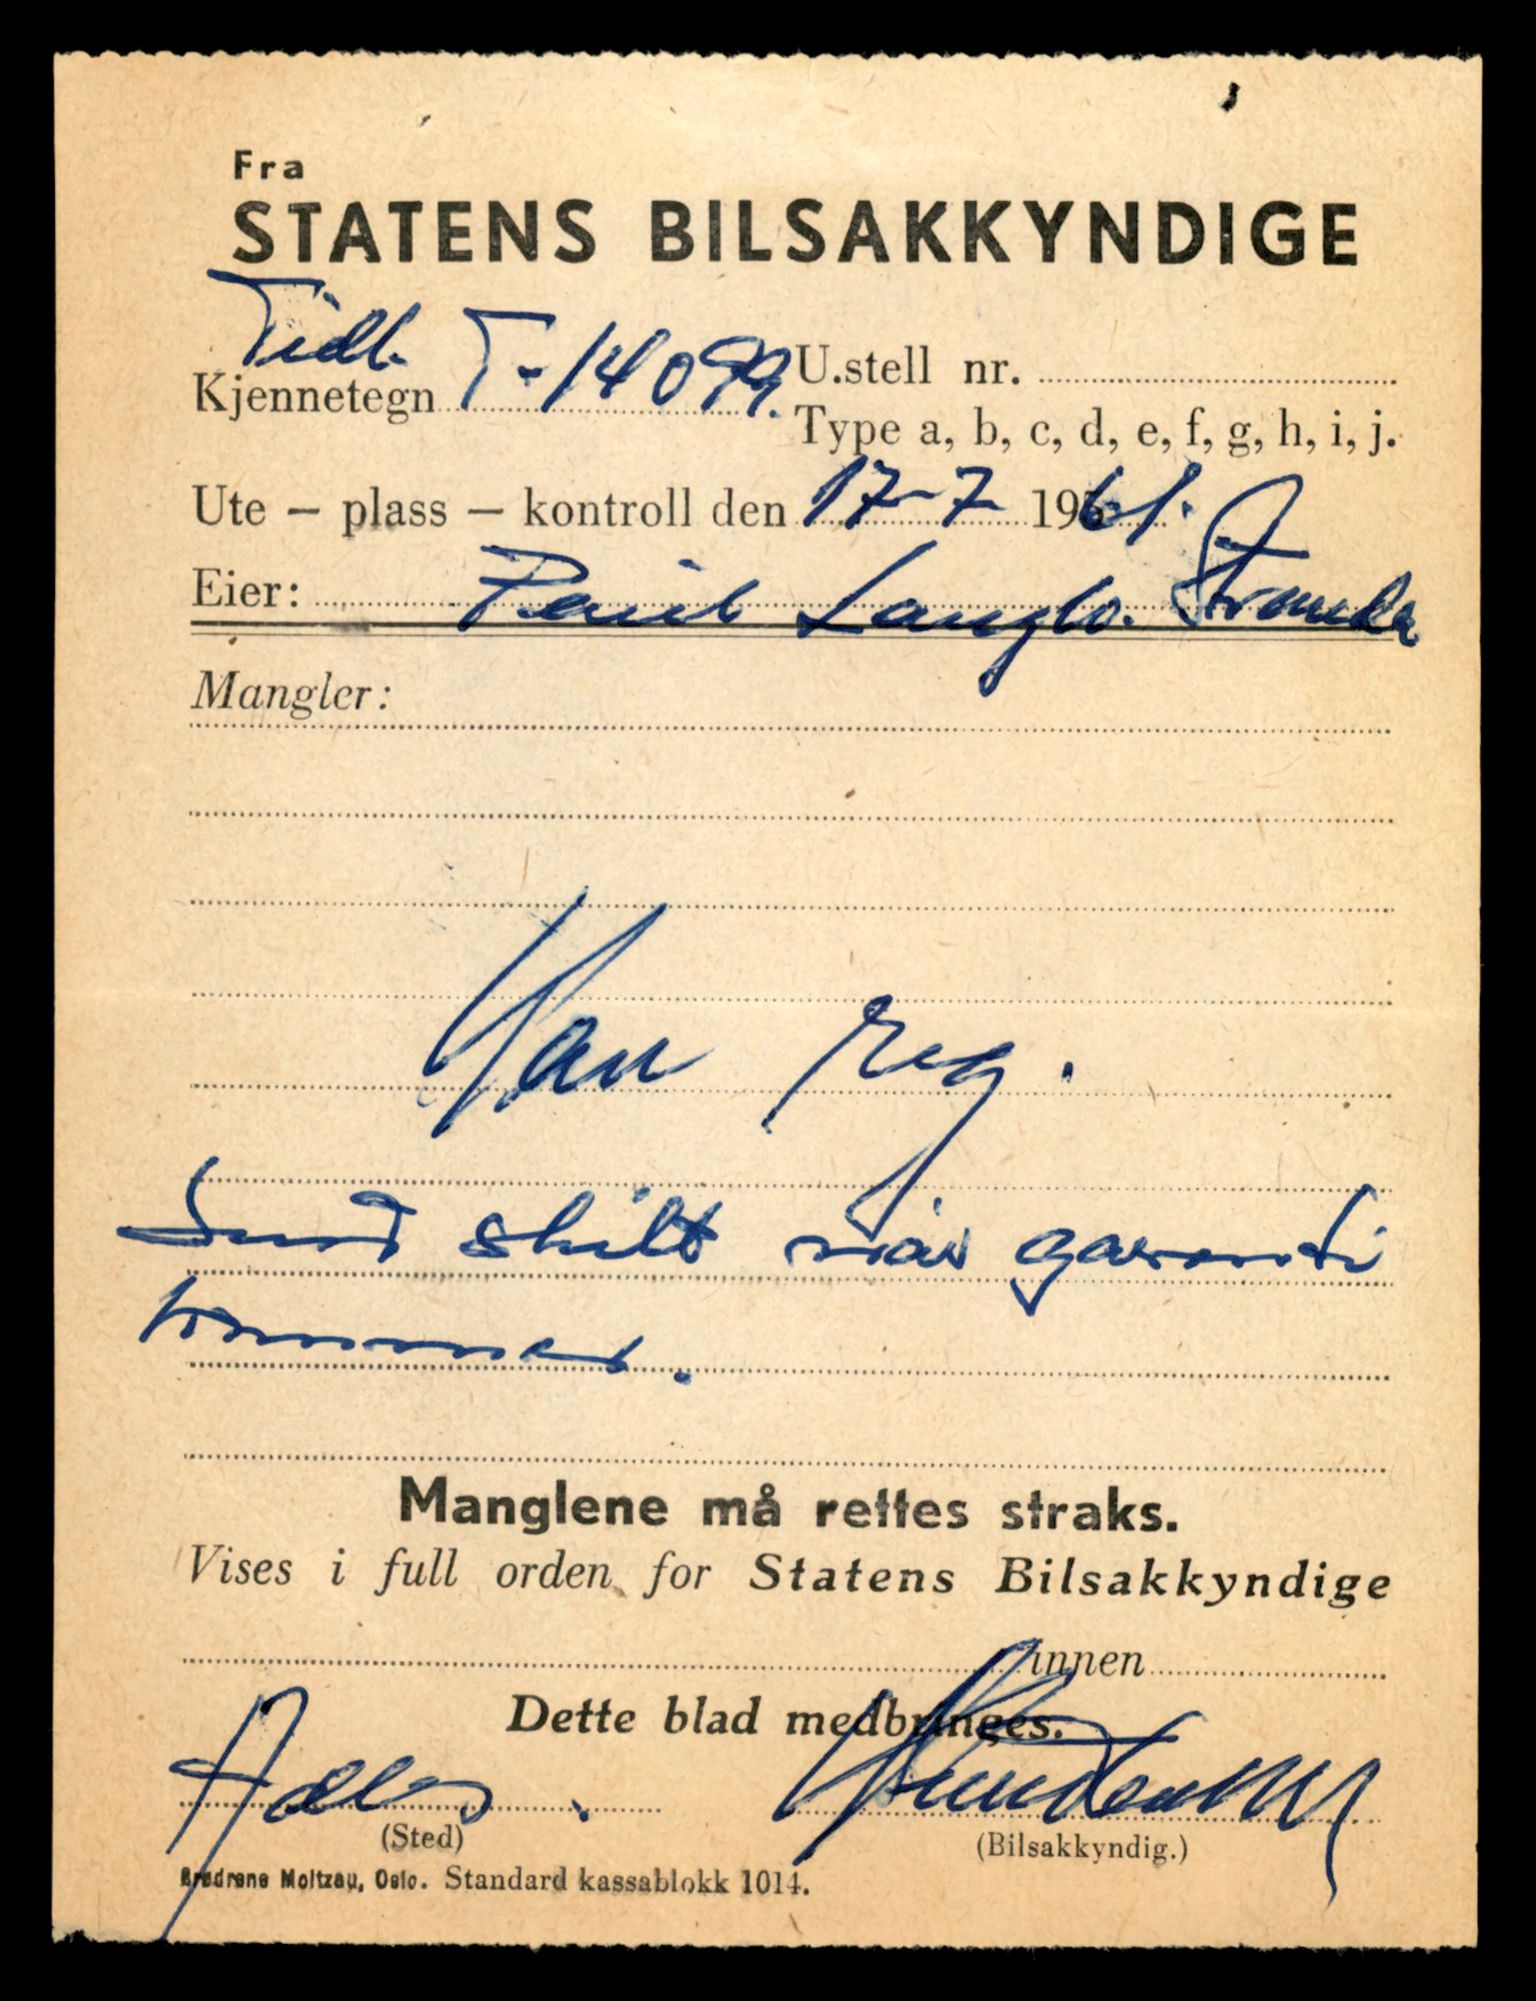 Fra
STATENS BILSAKKYNDIGE
Tidl.
Kjennetegn T-14099. U.stell nr.
Type a, b, c, d, e, f, g, h, i, j.
Ute — plass — kontroll den 17-7 1961.
Eier: Paul Langlo. Stranda
Mangler:
Kan reg.
Send skilt når garanti
kommer.
Manglene må rettes straks.
Vises i full orden for Statens Bilsakkyndige
innen
Dette blad medbringes.
(Sted)
(Bilsakkyndig.)
Brødrene Moltzau, Oslo. Standard kassablokk 1014.